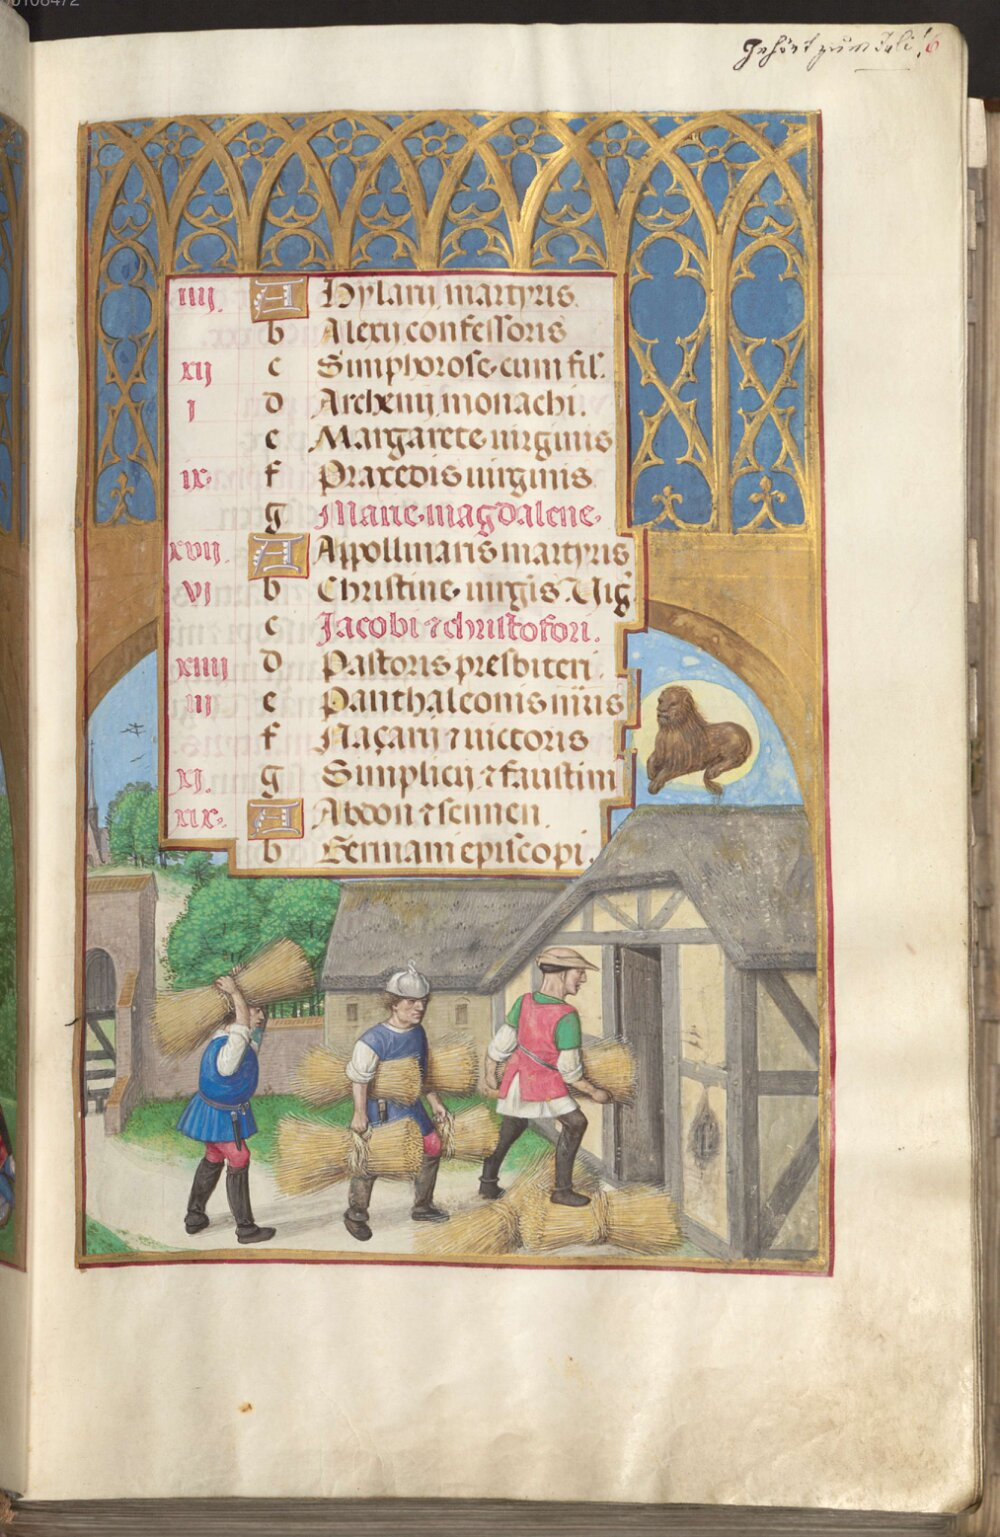 Gehört zum Juli! 6
iiij. A Hylarij martyris.
b Alexij confessoris
xij c Simphorose cum fil'.
j d Archenij monachi.
e Margarete uirginis
ix. f Praxedis uirginis.
g Marie magdalene.
xvij. A Appollinaris martyris
vj b Christine uirgis. Uig̃.
c Jacobi ⁊ christofori.
xiiij d Pastoris presbiteri.
iij e Panthaleonis m̃ris
f Naçarij ⁊ uictoris
xj. g Simplicij ⁊ faustini
xix. A Abdon ⁊ sennen.
b Germani episcopi.